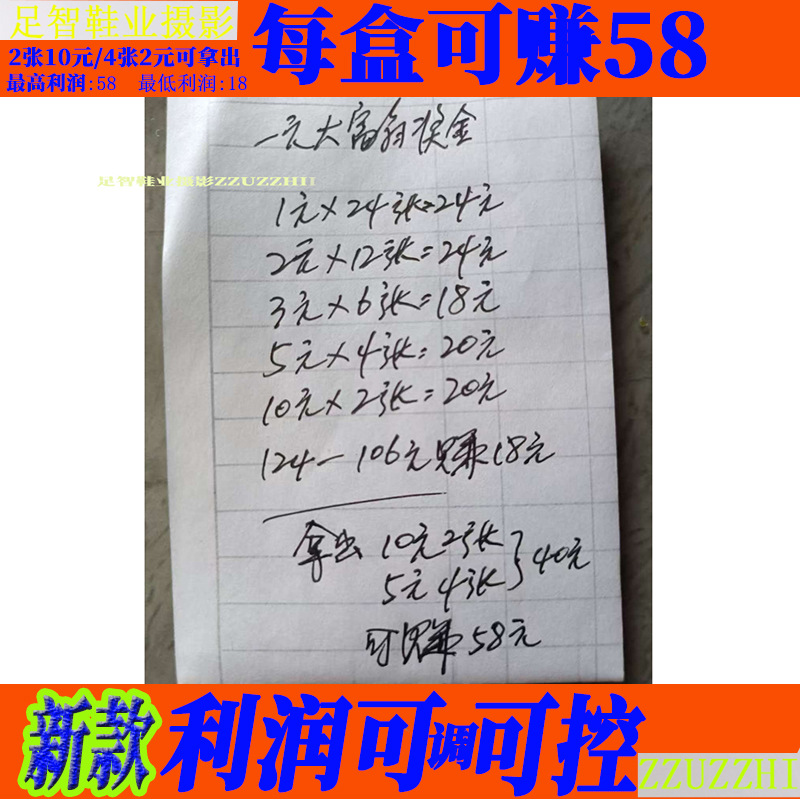 足智鞋业摄影
2张10元/4张2元可拿出
每盒可赚58
最高利润:58 最低利润:18
一元大富翁奖金
足智鞋业摄影ZZUZZHII
1元×24张=24元
2元×12张=24元
3元×6张=18元
5元×4张=20元
10元×2张=20元
124-106元赚18元
拿出 10元2张
5元4张 } 40元
可赚58元
新款利润可调可控
ZZUZZHI